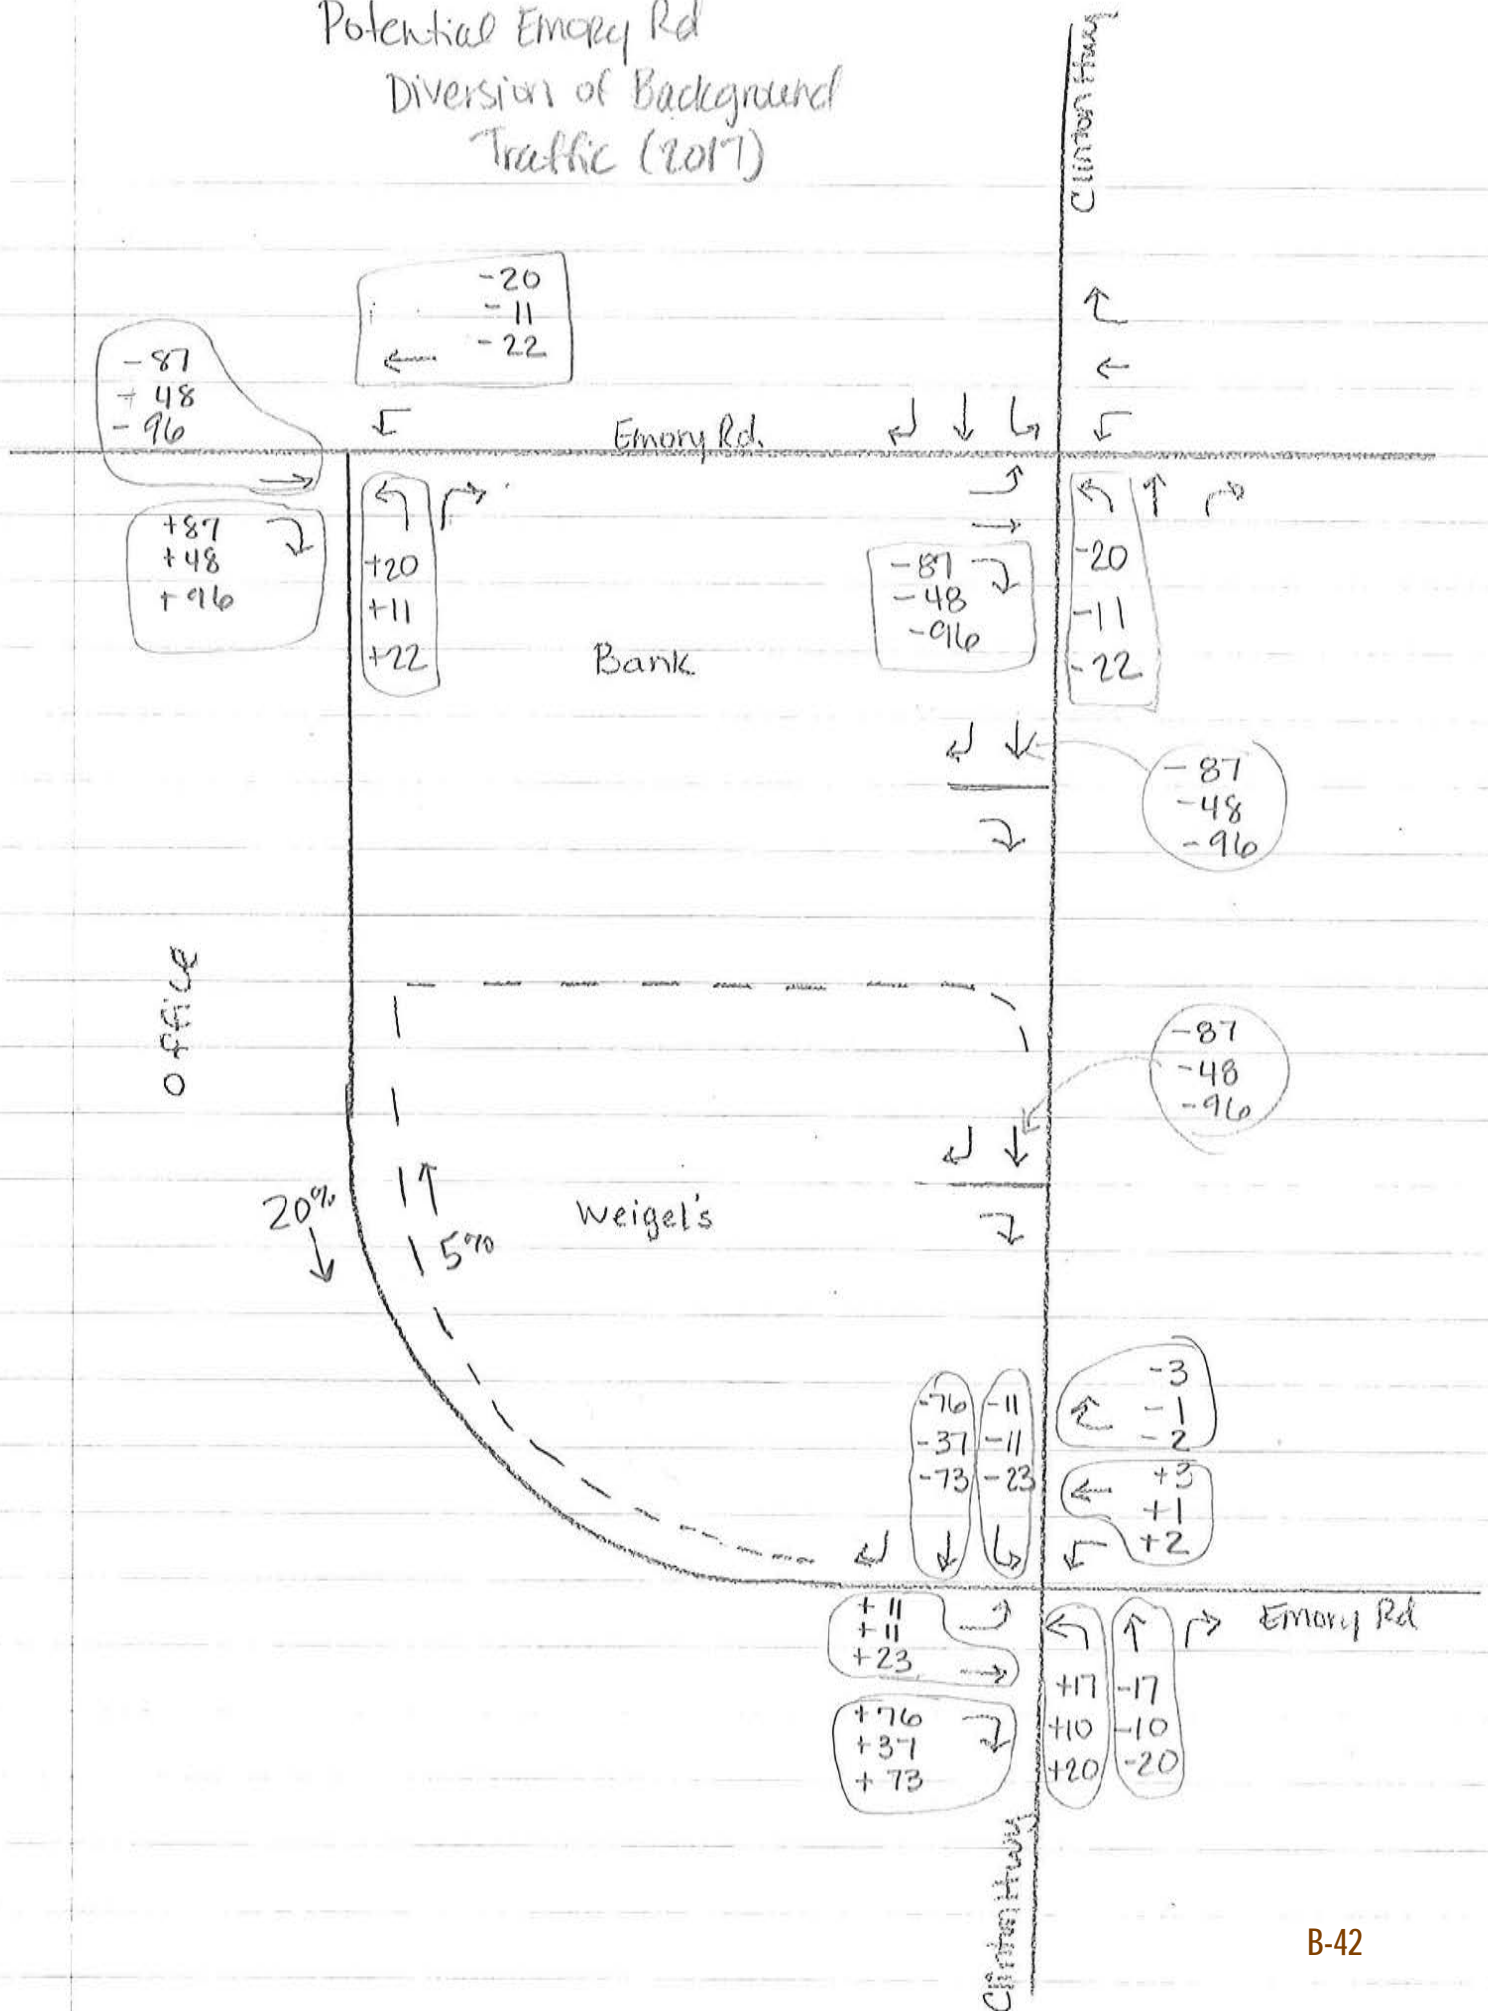 Potential Emory Rd
Diversion of Background
Traffic (2017)
Clinton Hwy
-20
-11
-22
-87
-48
-96
Emory Rd.
+87
+48
+96
+20
+11
+22
Bank
-87
-48
-96
-20
-11
-22
-87
-48
-96
Office
-87
-48
-96
20%
5%
Weigel's
-76 -11
-37 -11
-73 -23
-3
-1
-2
+3
+1
+2
Emory Rd
+11
+11
+23
+76
+37
+73
+17 -17
+10 -10
+20 -20
Clinton Hwy
B-42